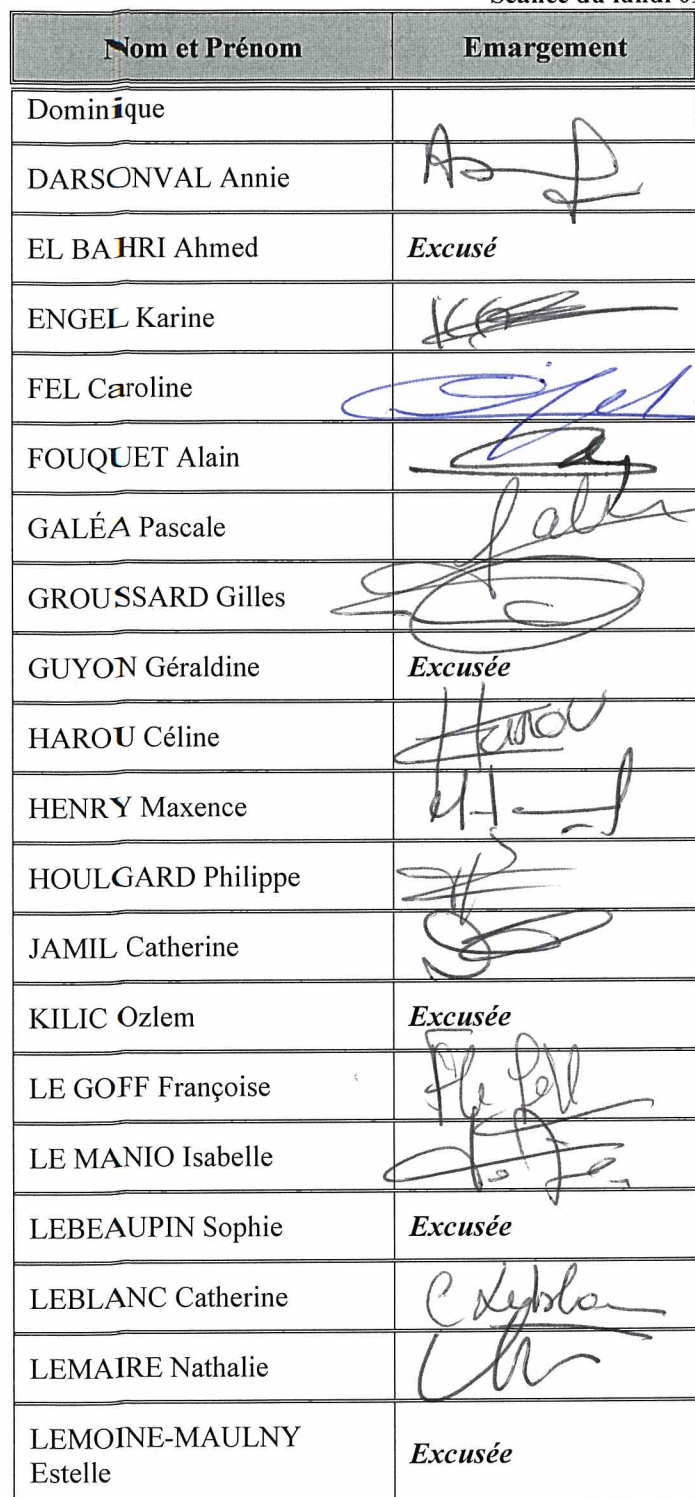 Nom et Prénom Emargement
Dominique
DARSONVAL Annie
EL BAHRI Ahmed Excusé
ENGEL Karine
FEL Caroline
FOUQUET Alain
GALÉA Pascale
GROUSSARD Gilles
GUYON Géraldine Excusée
HAROU Céline Harou
HENRY Maxence
HOULGARD Philippe
JAMIL Catherine
KILIC Ozlem Excusée
LE GOFF Françoise
LE MANIO Isabelle
LEBEAUPIN Sophie Excusée
LEBLANC Catherine
LEMAIRE Nathalie
LEMOINE-MAULNY
Estelle Excusée